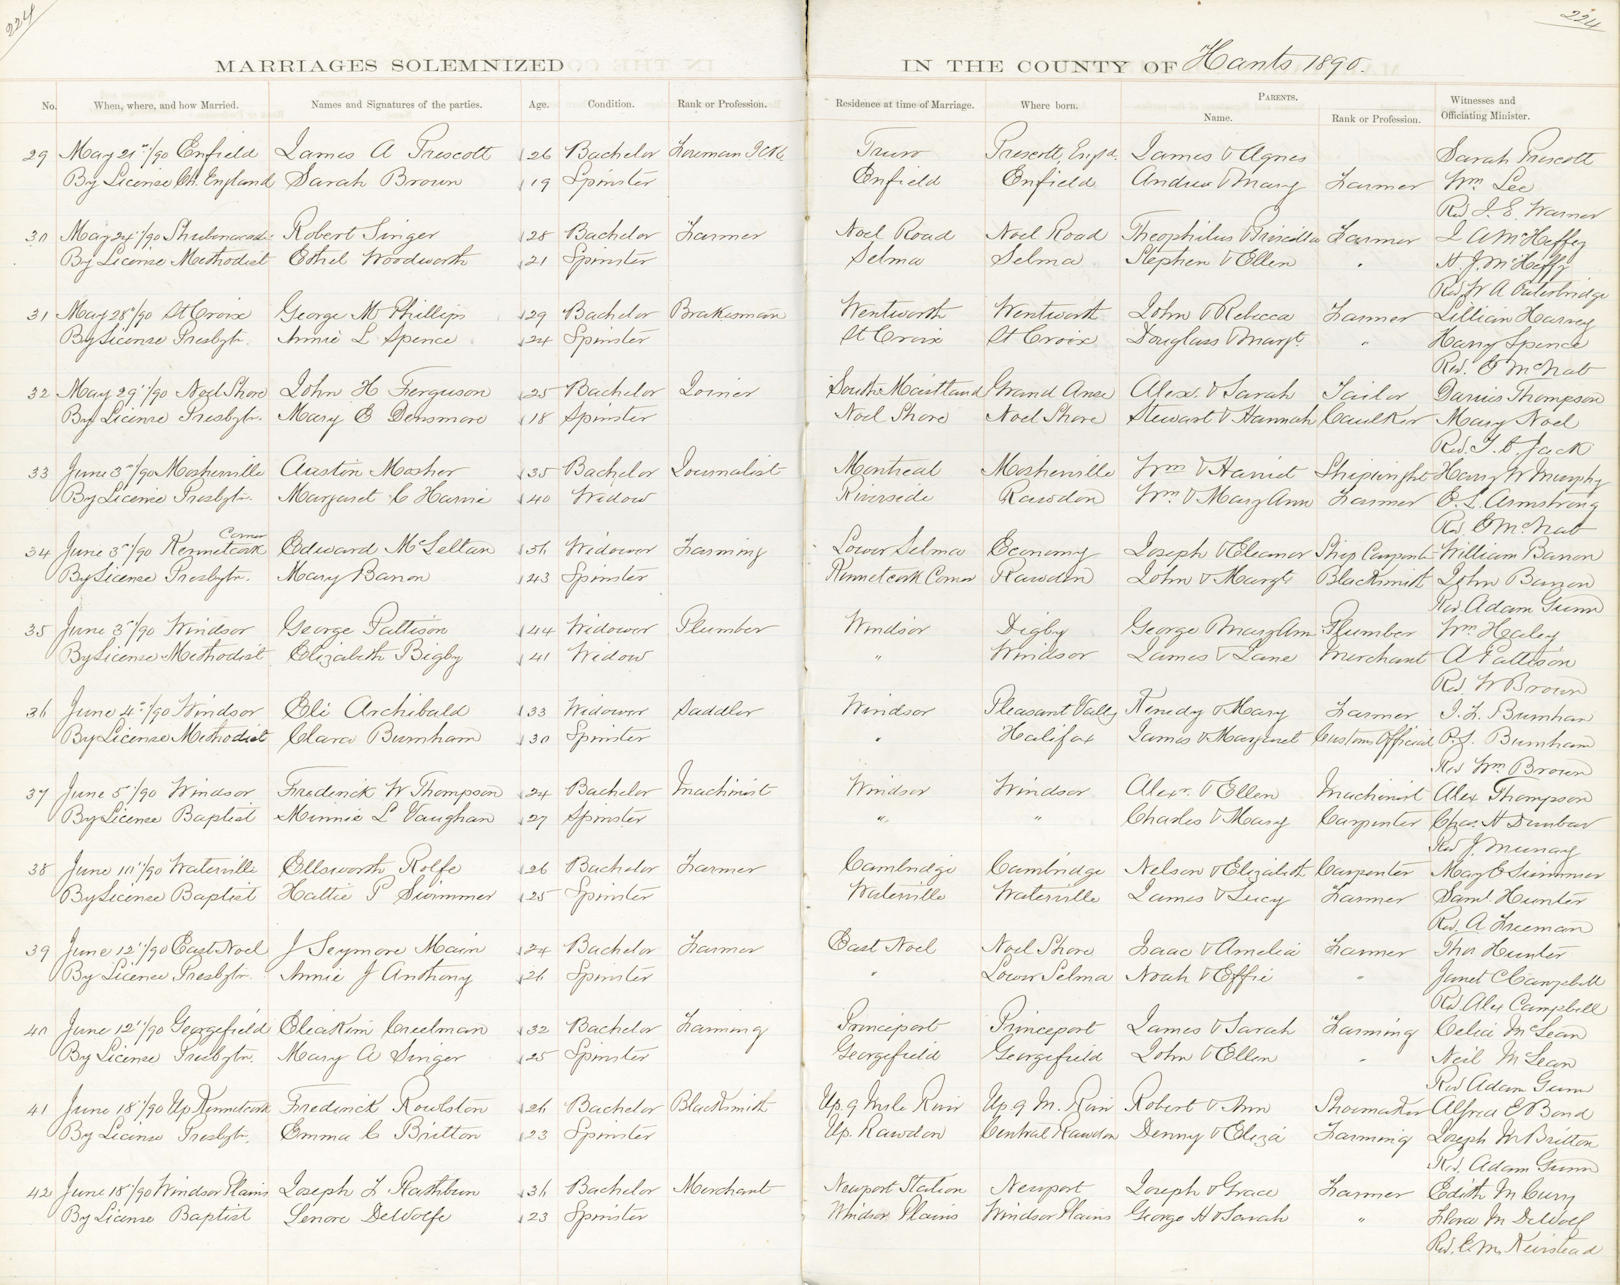 224
224
MARRIAGES SOLEMNIZED IN THE COUNTY OF Hants 1890.
No. When, where, and how Married. Names and Signatures of the parties. Age. Condition. Rank or Profession. Residence at time of Marriage. Where born. PARENTS. Name. Rank or Profession. Witnesses and Officiating Minister.
29 May 21st/90 Enfield James A Prescott 26 Bachelor Foreman Truro Prescott, Engd. James & Agnes Sarah Prescott
By License Ch. England Sarah Brown 19 Spinster Enfield Enfield Andrew & Mary Farmer Wm Lee
Revd J. E. Warner
30 May 24"/90 Shubenacadie Robert Singer 28 Bachelor Farmer Noel Road Noel Road Theophilus & Priscilla Farmer J A McHeffey
By License Methodist Ethel Woodworth 21 Spinster Selma Selma Stephen & Ellen " H. J. McHeffy
Revd W A Outerbridge
31 May 28"/90 St Croix George M Phillips 29 Bachelor Brakesman Wentworth Wentworth John & Rebecca Farmer Lillian Harvey
By License Presbytr. Annie L Spence 24 Spinster St Croix St Croix Douglass & Margt. " Harry Spence
Revd. E McNab
32 May 29"/90 Noel Shore John H Ferguson 25 Bachelor Joiner South Maitland Grand Anse Alex. & Sarah Tailor Darius Thompson
By License Presbytr. Mary E Densmore 18 Spinster Noel Shore Noel Shore Stewart & Hannah Caulker Mary Noel
Revd. T. C Jack
33 June 3"/90 Mosherville Austin Mosher 35 Bachelor Journalist Montreal Mosherville Wm & Harriet Shipwright Harry W Murphy
By License Presbytr. Margaret C Harvie 40 Widow Riverside Rawdon Wm & Mary Ann Farmer E. L. Armstrong
Revd. E McNab
34 June 3"/90 Kennetcook Corner Edward McLellan 36 Widower Farming Lower Selma Economy Joseph & Eleanor Ship Carpentr William Barron
By License Presbytr. Mary Barron 43 Spinster Kennetcook Corner Rawdon John & Margt Blacksmith John Barron
Revd. Adam Gunn
35 June 3"/90 Windsor George Pattison 44 Widower Plumber Windsor Digby George & Mary Ann Plumber Wm Healey
By License Methodist Elizabeth Bigby 41 Widow " Windsor James & Jane Merchant A Pattison
Revd. W Brown
36 June 4"/90 Windsor Eli Archibald 33 Widower Saddler Windsor Pleasant Valley Kenedy & Mary Farmer J. F. Burnham
By License Methodist Clara Burnham 30 Spinster " Halifax James & Margaret Customs Official P. S. Burnham
Revd Wm Brown
37 June 5"/90 Windsor Frederick W Thompson 24 Bachelor Machinist Windsor Windsor Alexr. & Ellen Machinist Alex Thompson
By License Baptist Minnie L Vaughan 27 Spinster " " Charles & Mary Carpenter Chas. H Dunbar
Revd J. Murray
38 June 10"/90 Waterville Ellsworth Rolfe 26 Bachelor Farmer Cambridge Cambridge Nelson & Elizabeth Carpenter May E Swimmer
By License Baptist Hattie P Swimmer 25 Spinster Waterville Waterville James & Lucy Farmer Saml Hunter
Revd. A Freeman
39 June 12"/90 East Noel J Seymore Main 24 Bachelor Farmer East Noel Noel Shore Isaac & Amelia Farmer Thos Hunter
By License Presbytr. Annie J Anthony 26 Spinster " Lower Selma Noah & Effie " Janet C Campbell
Revd Alex Campbell
40 June 12"/90 Georgefield Eliakim Creelman 32 Bachelor Farming Princeport Princeport James & Sarah Farming Celia McLean
By License Presbytr. Mary A Singer 25 Spinster Georgefield Georgefield John & Ellen " Neil McLean
Revd Adam Gunn
41 June 18"/90 Up Kennetcook Frederick Roulston 26 Bachelor Blacksmith Up. 9 Mile River Up. 9 M. River Robert & Ann Shoemaker Alfred E Bond
By License Presbytr. Emma C Britton 23 Spinster Up. Rawdon Central Rawdon Denny & Eliza Farming Joseph W Britton
Revd. Adam Gunn
42 June 18"/90 Windsor Plains Joseph F Rathbun 36 Bachelor Merchant Newport Station Newport Joseph & Grace Farmer Edith M Curry
By License Baptist Lenore DeWolfe 23 Spinster Windsor Plains Windsor Plains George H & Sarah " Flora M DeWolf
Revd. E. M. Keirstead